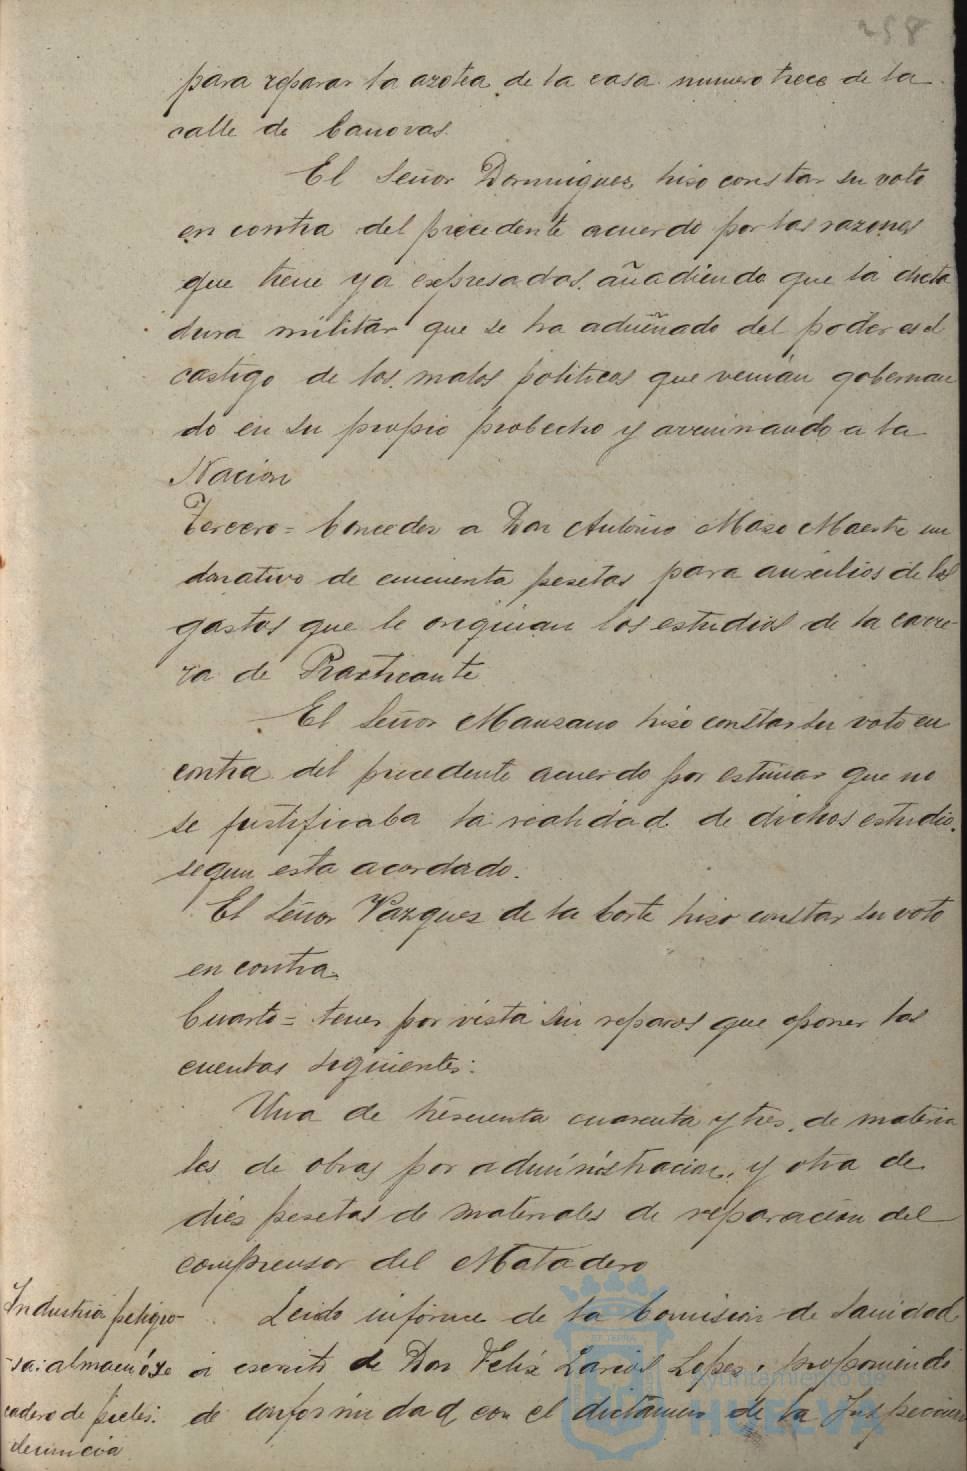 258
para reparar la azotea de la casa numero trece de la
calle de Canovas.
El Señor Dominguez, hizo constar su voto
en contra del precedente acuerdo por las razones
que tiene ya expresadas, añadiendo que la dicta
dura militar que se ha adueñado del poder es el
castigo de los malos politicos que venian gobernan
do en su propio probecho y arruinando a la
Nacion
Tercero = Conceder a Don Antonio Mazo Maestre un
donativo de cincuenta pesetas para auxilios de los
gastos que le originan los estudios de la carre-
ra de Practicante
El Señor Manzano hizo constar su voto en
contra del precedente acuerdo por estimar que no
se justificaba la realidad de dichos estudios
segun esta acordado.
El Señor Vazquez de la Corte hizo constar su voto
en contra.
Cuarto = tener por vista sin reparos que oponer las
cuentas siguientes:
Una de trescienta cuarenta y tres, de materia
les de obras por administracion, y otra de
diez pesetas de materiales de reparacion del
compresor del Matadero
Industria peligro-
sa: almacén ó se
cadero de pieles:
denuncia
Leido informe de la Comision de Sanidad
á escrito de Don Felix Larios Lopez, proponiendo
de conformidad con el dictamen de la Inspeccion
Ayuntamiento de
HUELVA